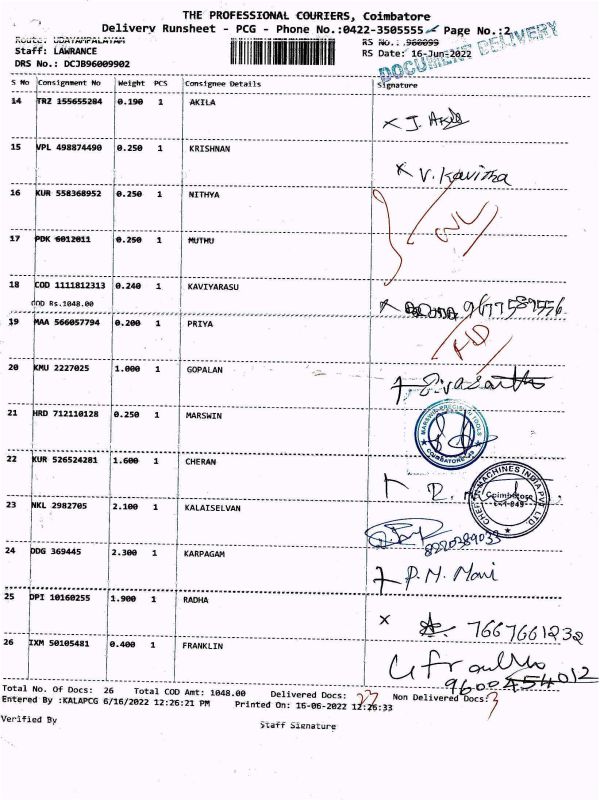 THE PROFESSIONAL COURIERS, Coimbatore
Delivery Runsheet - PCG - Phone No.:0422-3505555 Page No.:2
Route: UDAYAMPALAYAM RS No.:960099
Staff: LAWRANCE RS Date: 16-Jun-2022
DRS No.: DCJB96009902
DOCUMENT DELIVERY
S No Consignment No Weight PCS Consignee Details Signature
14 TRZ 155655284 0.190 1 AKILA
J. Akila
15 VPL 498874490 0.250 1 KRISHNAN
V. Kavitha
16 KUR 558368952 0.250 1 NITHYA
17 PDK 6012011 0.250 1 MUTHU
18 COD 1111812313 0.240 1 KAVIYARASU
COD Rs.1048.00
9677589556
19 MAA 566057794 0.200 1 PRIYA
20 KMU 2227025 1.000 1 GOPALAN
21 HRD 712110128 0.250 1 MARSWIN
22 KUR 526524281 1.600 1 CHERAN
23 NKL 2982705 2.100 1 KALAISELVAN
8220289033
24 DDG 369445 2.300 1 KARPAGAM
P.M. Mani
25 DPI 10160255 1.900 1 RADHA
7667661232
26 IXM 50105481 0.400 1 FRANKLIN
9600454012
Total No. Of Docs: 26 Total COD Amt: 1048.00 Delivered Docs: 23 Non Delivered Docs: 3
Entered By :KALAPCG 6/16/2022 12:26:21 PM Printed On: 16-06-2022 12:26:33
Verified By Staff Signature